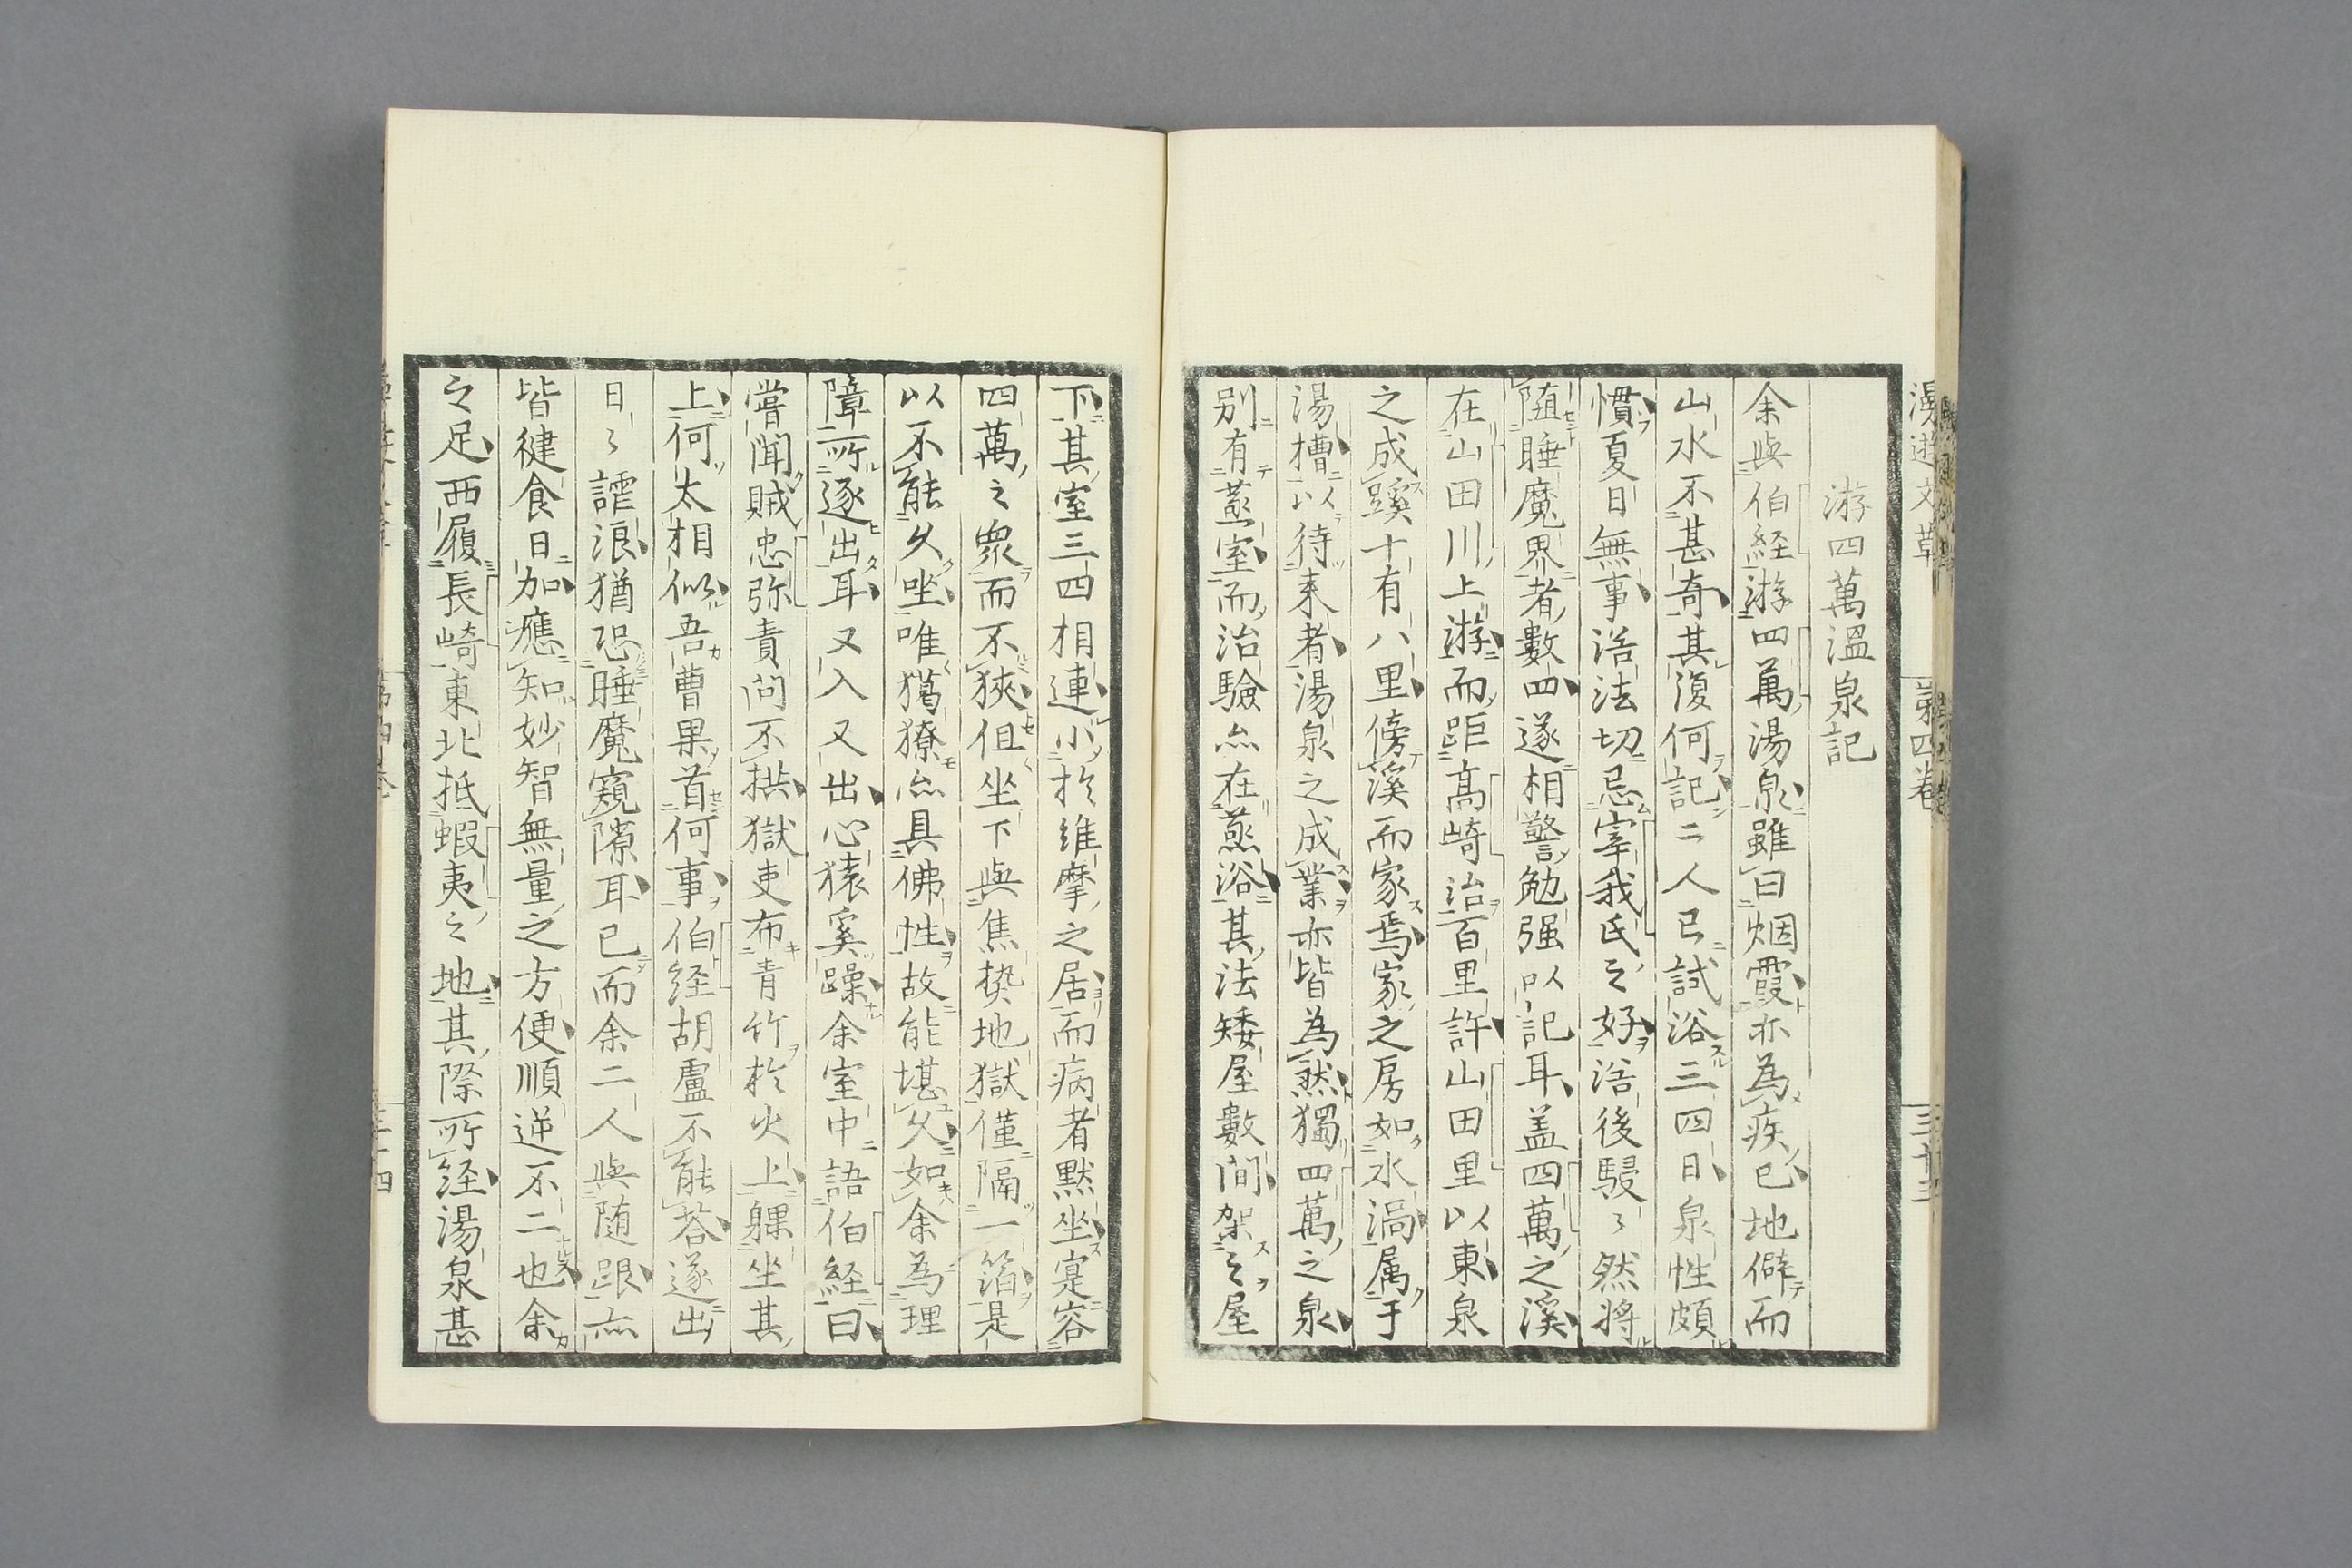 游四萬溫泉記
余與伯経游四萬湯泉雖曰烟霞亦為疾已地僻而
山水不甚奇其復何記二人已試浴三四日泉性頗
慣夏日無事浴法切忌宰我氏之好浴後駸〻然將
随睡魔界者數四遂相警勉强以記耳盖四萬之溪
在山田川上游而距髙崎治百里許山田里以東泉
之成蹊十有八里傍溪而家焉家之房如水渦属于
湯槽以待来者湯泉之成業亦皆為然獨四萬之泉
別有蒸室而治驗亦在蒸浴其法矮屋數間架之屋
漫遊文草
第四卷
三十三
下其室三四相連小於維摩之居而病者默坐寔容
四萬之衆而不狹但坐下與焦𤍠地獄僅隔一箔是
以不能久坐唯獦獠亦具佛性故能堪久如余為理
障所逐出耳又入又出心猿奚躁余室中語伯経曰
嘗聞賊忠弥責問不拱獄吏布青竹於火上躶坐其
上何太相似吾曹果首何事伯経胡盧不能荅遂出
日〻謔浪猶恐睡魔窺隙耳已而余二人與随跟亦
皆健食日加應知妙智無量之方便順逆不二也余
之足西履長崎東北抵蝦夷之地其際所経湯泉甚